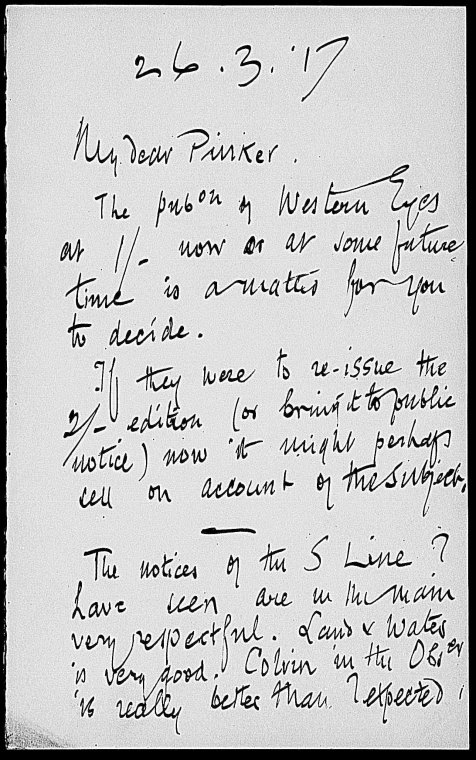 26.3.'17
My dear Pinker.
The pubon of Western Eyes
at 1/- now or at some future
time is a matter for you
to decide.
If they were to re-issue the
2/- edition (or bring it to public
notice) now it might perhaps
sell on account of the subject.
The notices of the S Line I
have seen are in the main
very respectful. Land & Water
is very good. Colvin in the Obser
is really better than I expected.